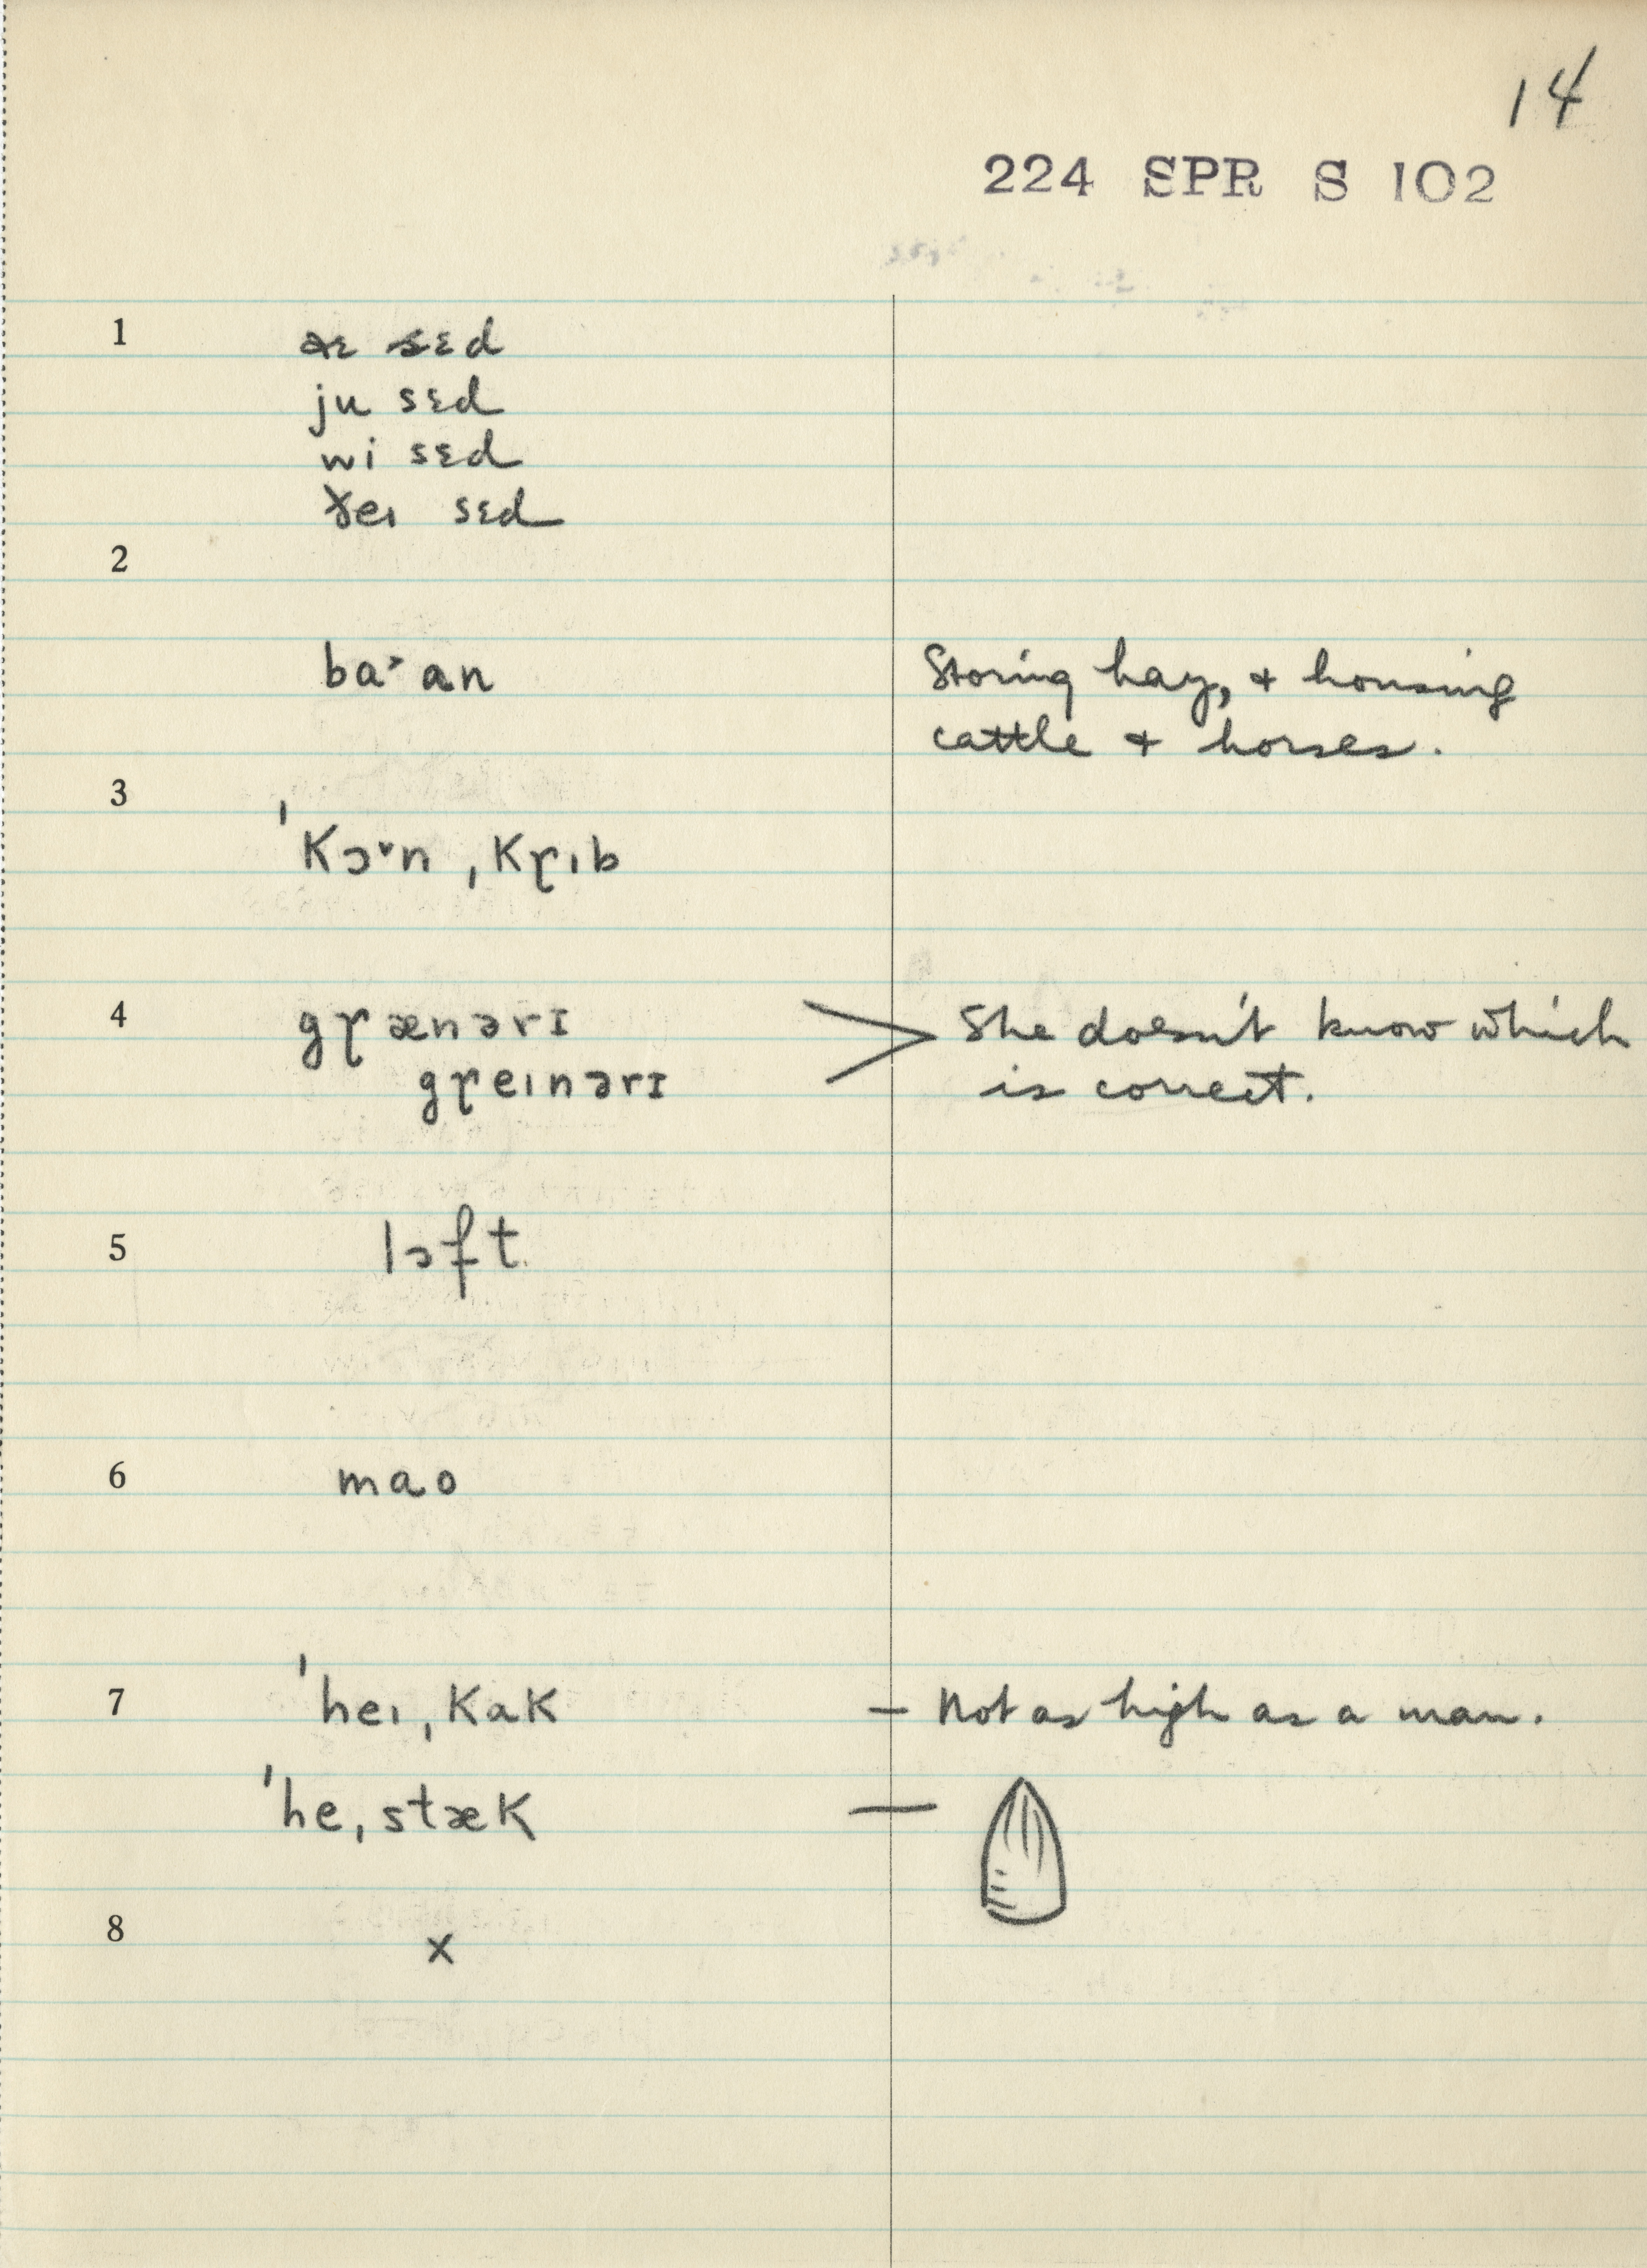 14
224 SPR S 102
1 aɪ sɛd
ju sɛd
wi sɛd
ðeɪ sɛd
2
ba˃an Storing hay, & housing
cattle & horses.
3
ˈkɔ˅nˌkɼɪb
4 gɼænərɪ > She doesn't know which
gɼeɪnərɪ is correct.
5 lɔft
6 mao
7 ˈheɪˌkak — Not as high as a man.
ˈheˌstæk —
8 x